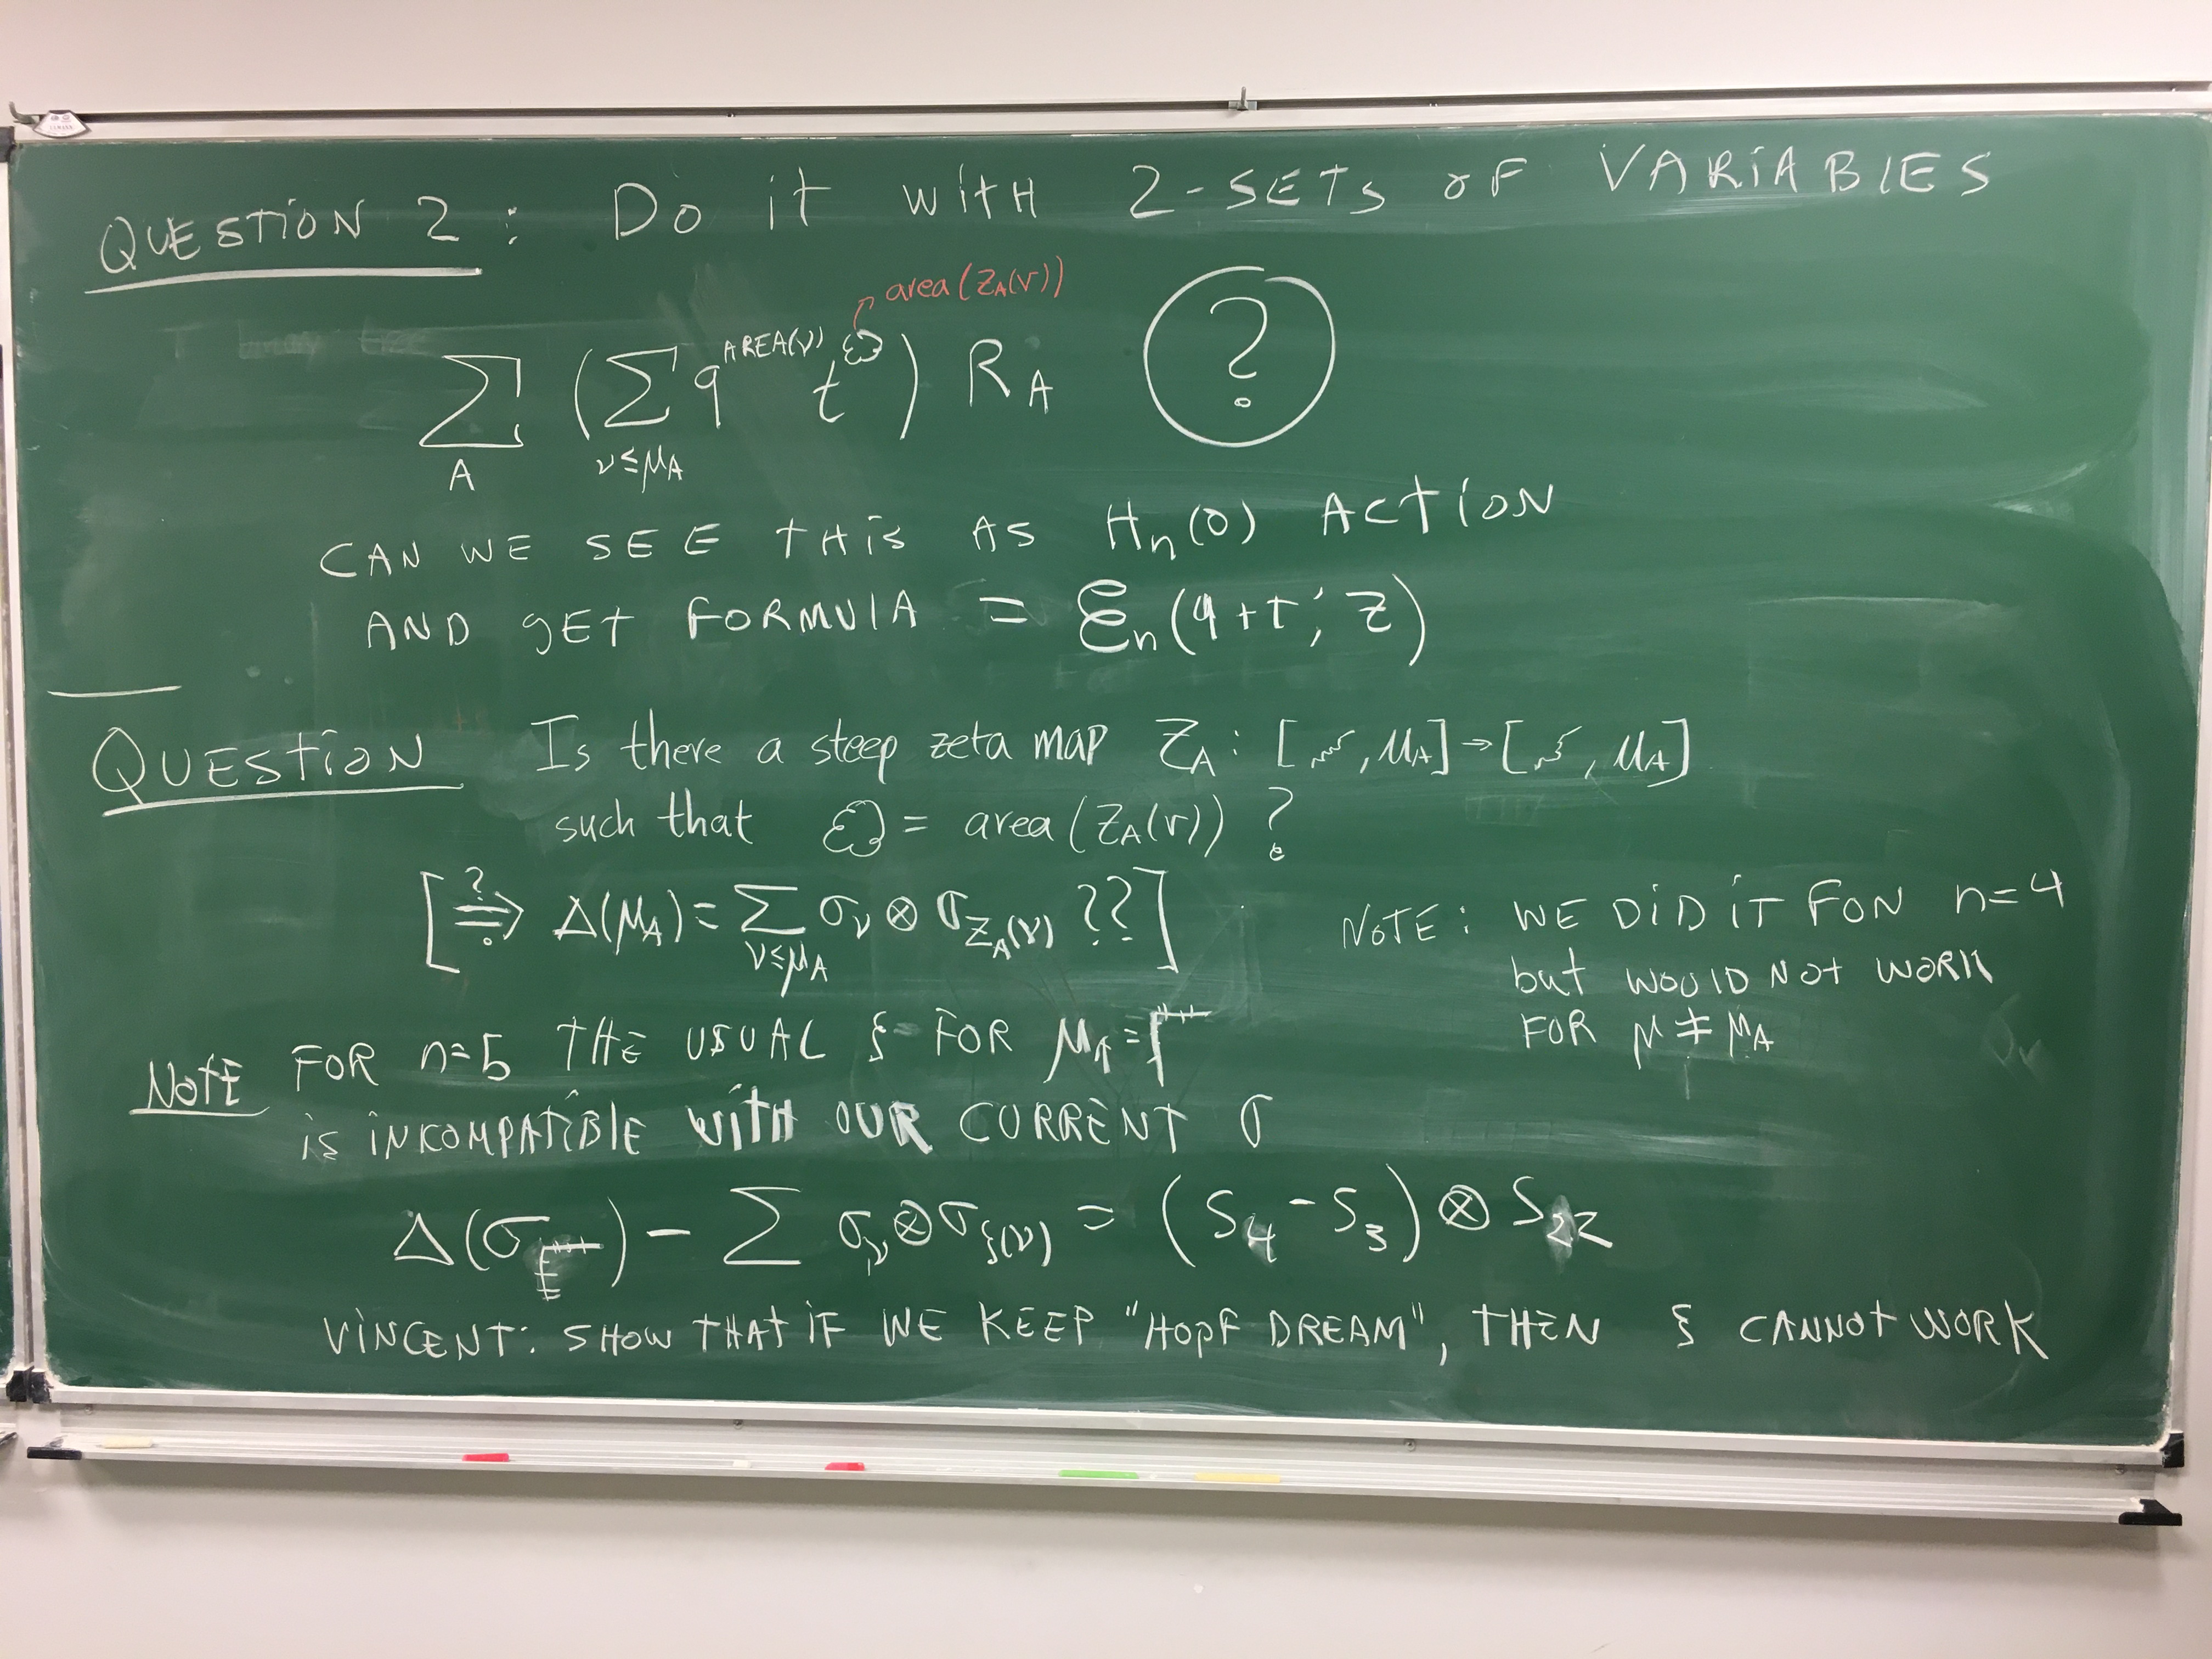 QUESTION 2 : Do it with 2-SETS OF VARIABLES
area(Z_A(ν))
∑_A (∑_{ν≤μ_A} q^{AREA(ν)} t^{}) R_A ?
CAN WE SEE THIS AS H_n(0) ACTION
AND GET FORMULA = Ɛ_n(q+t; z)
QUESTION Is there a steep zeta map Z_A : [ , μ_A] → [ , μ_A]
such that = area(Z_A(ν)) ?
[ ?⇒ Δ(μ_A) = ∑_{ν≤μ_A} σ_ν ⊗ σ_{Z_A(ν)} ?? ]
NOTE : WE DID IT FON n=4
but WOULD NOT WORK
FOR μ ≠ μ_A
NOTE FOR n=5 THE USUAL ξ FOR μ_A =
IS INKOMPATIBLE WITH OUR CURRENT σ
Δ(σ) − ∑ σ_ν ⊗ σ_{ξ(ν)} = (S_4 − S_3) ⊗ S_22
VINCENT: SHOW THAT IF WE KEEP "HOPF DREAM", THEN ξ CANNOT WORK